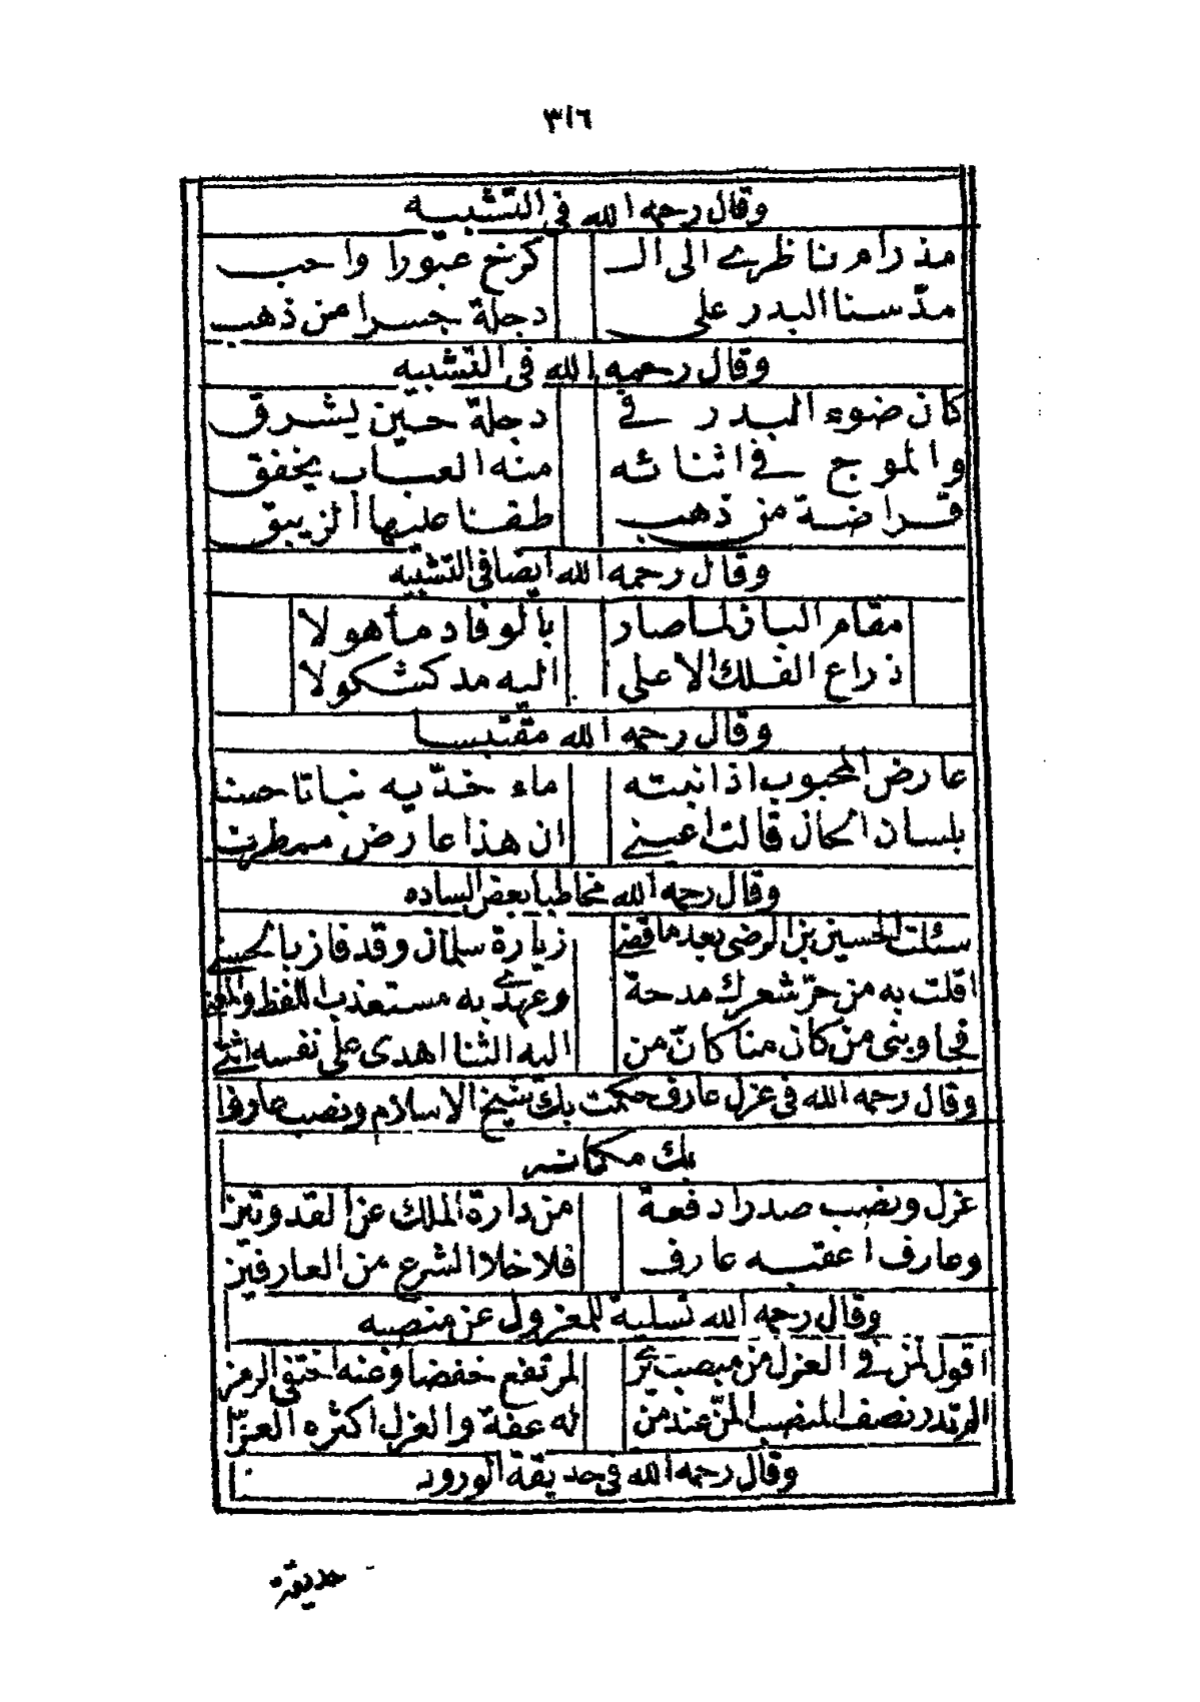 ٣١٦
وقال رحمه الله في التشبيه
مذ رام ناظري الى الـ كرخ عبورا واحب
مدّ سنا البدر على دجلة جسرا من ذهب
وقال رحمه الله في التشبيه
كان ضوء البدر في دجلة حين يشرق
والموج في اثنائه منه العباب يخفق
قراضة من ذهب طفا عليها الزيبق
وقال رحمه الله ايضا في التشبيه
مقام الباز لما صار بالوفاد مأهولا
ذراع الفلك الاعلى اليه مد كشكولا
وقال رحمه الله مقتبسا
عارض المحبوب اذ انبته ماء خدّيه نباتا حسنا
بلسان الحال قالت اعيني ان هذا عارض ممطرنا
وقال رحمه الله مخاطبا بعض الساده
سئلت الحسين بن الرضى بعد ما قضى زيارة سلمان وقد فاز بالحسنى
اقلت به من حرّ شعرك مدحة وعهدي به مستعذب اللفظ والمعنى
فجاوبني من كان منا كانّ من اليه الثنا اهدى على نفسه اثنى
وقال رحمه الله في عزل عارف حكمت بك شيخ الاسلام ونصب عارف
بك مكانه
عزل ونصب صدرا دفعة من دارة الملك عن القدوتين
وعارف اعقبه عارف فلا خلا الشرع من العارفين
وقال رحمه الله تسلية للمعزول عن منصبه
اقول لمن في العزل من منصب لمرتفع خفضا وعنه اختفى الرمز
الم تدر نصف المنصب عند من له عفة والعزل اكثره العزّ
وقال رحمه الله في حديقة الورود
حديقة